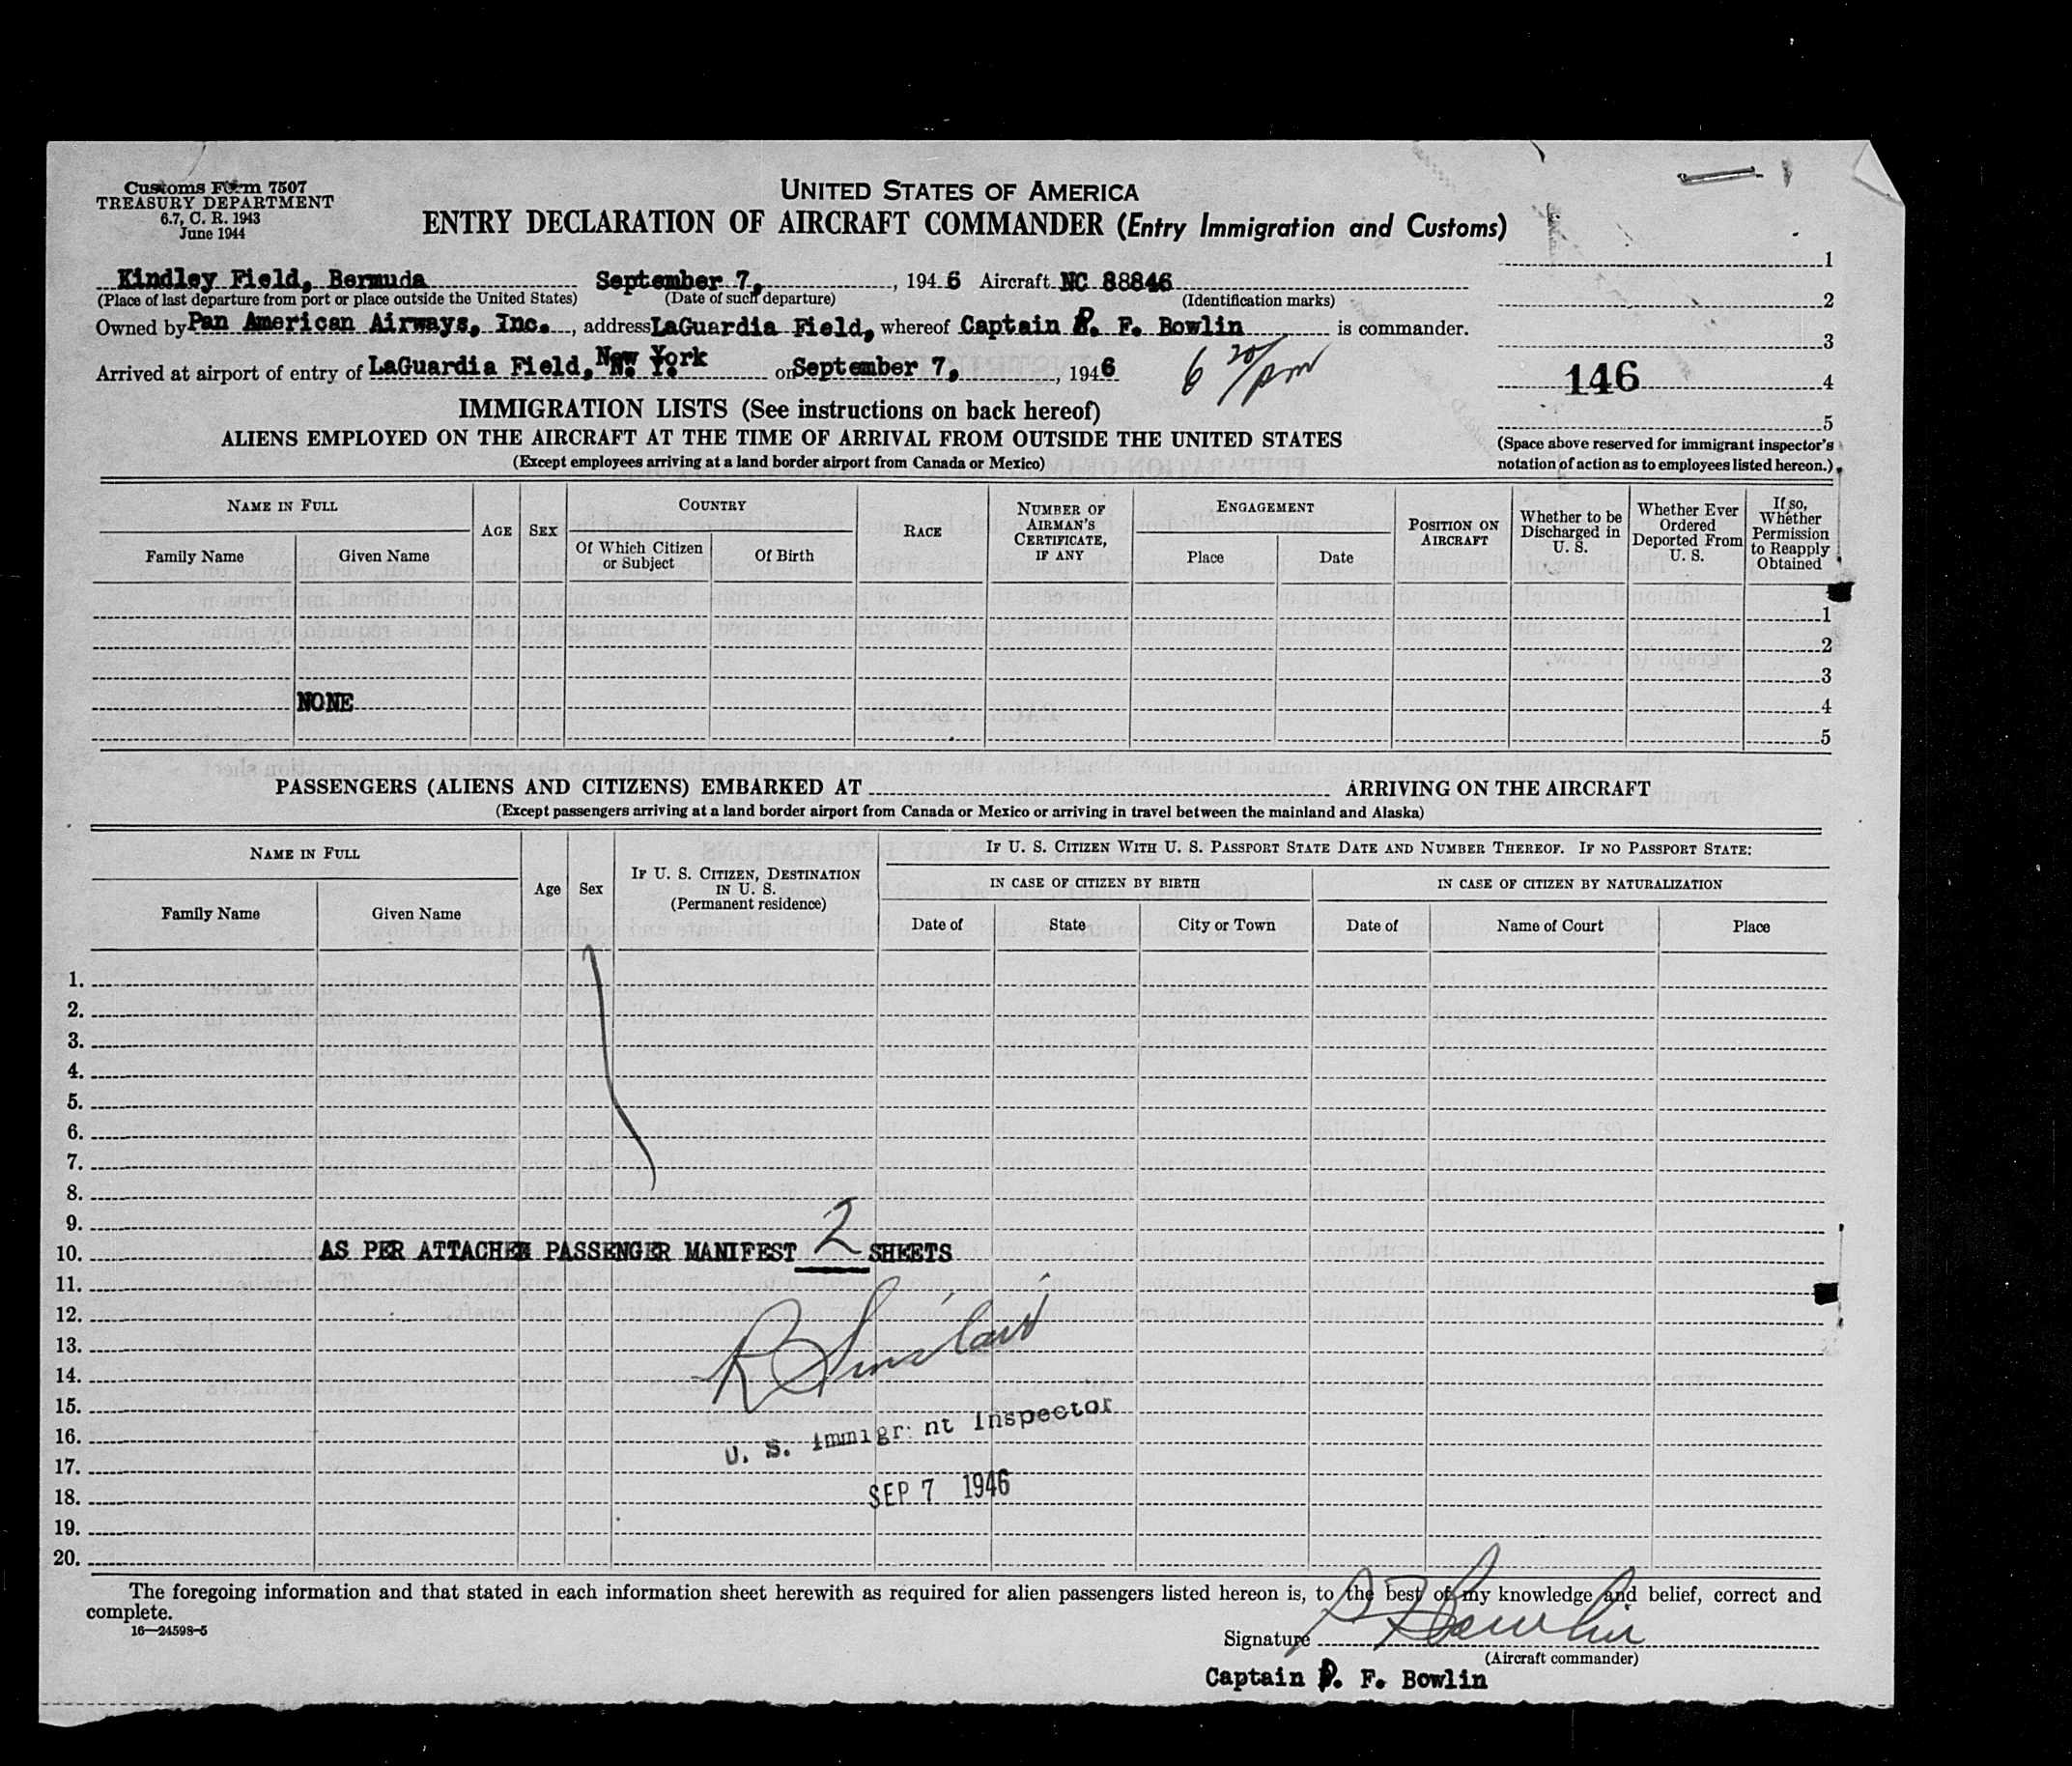 Customs Form 7507
TREASURY DEPARTMENT
6.7, C. R. 1943
June 1944
UNITED STATES OF AMERICA
ENTRY DECLARATION OF AIRCRAFT COMMANDER (Entry Immigration and Customs)
Kindley Field, Bermuda September 7, , 1946 Aircraft NC 88846
(Place of last departure from port or place outside the United States) (Date of such departure) (Identification marks)
Owned by Pan American Airways, Inc. , address LaGuardia Field, whereof Captain F. Bowlin is commander.
Arrived at airport of entry of LaGuardia Field, New York on September 7, , 1946 6 20/pm
1
2
3
146 4
5
(Space above reserved for immigrant inspector's
notation of action as to employees listed hereon.)
IMMIGRATION LISTS (See instructions on back hereof)
ALIENS EMPLOYED ON THE AIRCRAFT AT THE TIME OF ARRIVAL FROM OUTSIDE THE UNITED STATES
(Except employees arriving at a land border airport from Canada or Mexico)
NAME IN FULL
Family Name Given Name
AGE SEX
COUNTRY
Of Which Citizen or Subject Of Birth
RACE
NUMBER OF AIRMAN'S CERTIFICATE, IF ANY
ENGAGEMENT
Place Date
POSITION ON AIRCRAFT
Whether to be Discharged in U. S.
Whether Ever Ordered Deported From U. S.
If so, Whether Permission to Reapply Obtained
1
2
3
NONE 4
5
PASSENGERS (ALIENS AND CITIZENS) EMBARKED AT ARRIVING ON THE AIRCRAFT
(Except passengers arriving at a land border airport from Canada or Mexico or arriving in travel between the mainland and Alaska)
NAME IN FULL
Family Name Given Name
Age Sex
IF U. S. CITIZEN, DESTINATION IN U. S. (Permanent residence)
IF U. S. CITIZEN WITH U. S. PASSPORT STATE DATE AND NUMBER THEREOF. IF NO PASSPORT STATE:
IN CASE OF CITIZEN BY BIRTH IN CASE OF CITIZEN BY NATURALIZATION
Date of State City or Town Date of Name of Court Place
1.
2.
3.
4.
5.
6.
7.
8.
9.
10. AS PER ATTACHED PASSENGER MANIFEST 2 SHEETS
11.
12.
13. R Sinclair
14.
15.
16. U. S. Immigr nt Inspector
17.
18. SEP 7 1946
19.
20.
The foregoing information and that stated in each information sheet herewith as required for alien passengers listed hereon is, to the best of my knowledge and belief, correct and
complete.
16—24598-5
Signature F Bowlin
(Aircraft commander)
Captain F. Bowlin